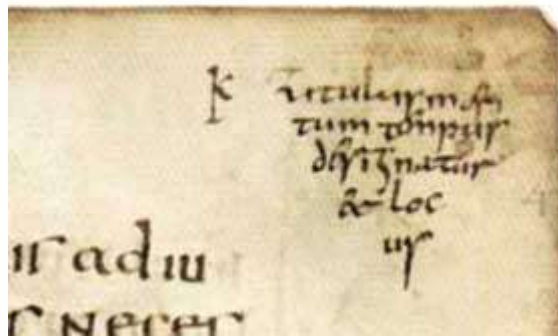 k titulus in
tum tempus
designatur
& loc
us
adiu
neces